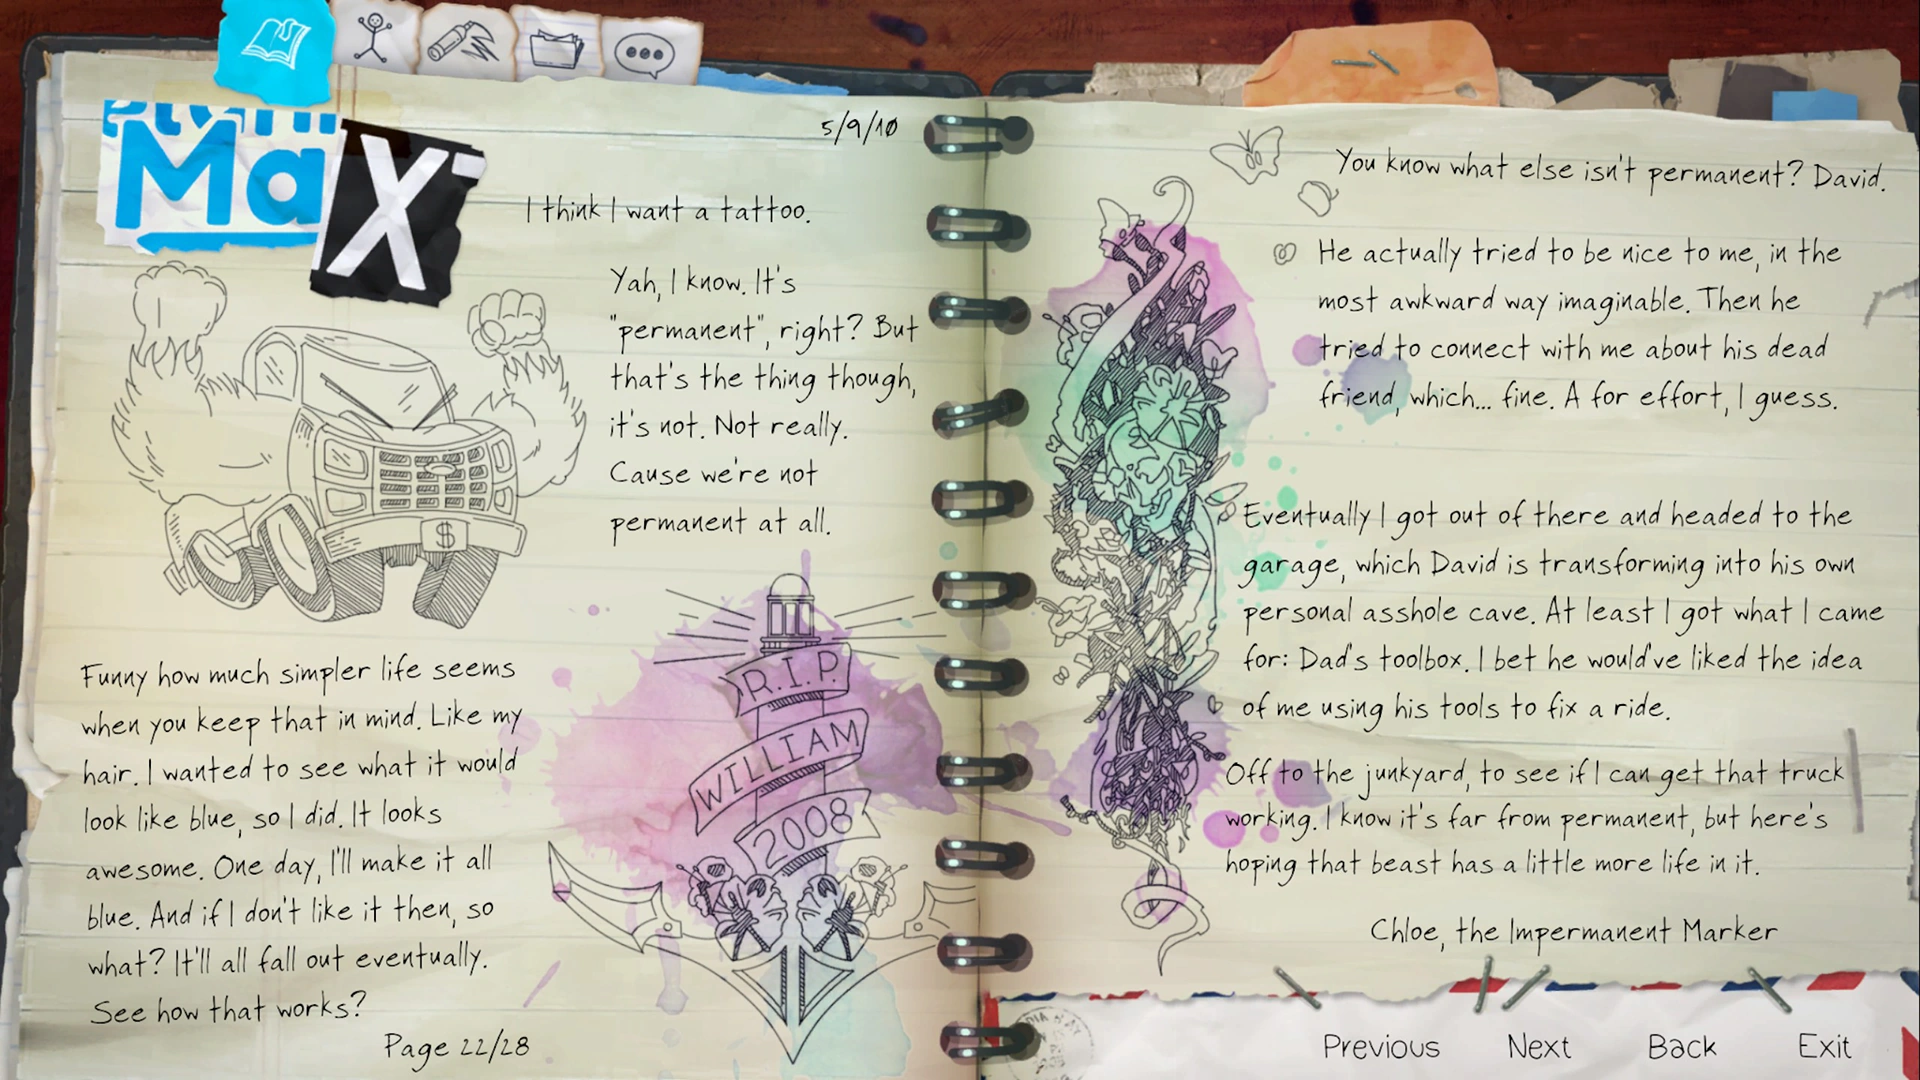 Max
5/9/10
I think I want a tattoo.
Yah, I know. It's
"permanent", right? But
that's the thing though,
it's not. Not really.
Cause we're not
permanent at all.
$
Funny how much simpler life seems
when you keep that in mind. Like my
hair. I wanted to see what it would
look like blue, so I did. It looks
awesome. One day, I'll make it all
blue. And if I don't like it then, so
what? It'll all fall out eventually.
See how that works?
R.I.P.
WILLIAM
2008
Page 22/28
You know what else isn't permanent? David.
He actually tried to be nice to me, in the
most awkward way imaginable. Then he
tried to connect with me about his dead
friend, which... fine. A for effort, I guess.
Eventually I got out of there and headed to the
garage, which David is transforming into his own
personal asshole cave. At least I got what I came
for: Dad's toolbox. I bet he would've liked the idea
of me using his tools to fix a ride.
Off to the junkyard, to see if I can get that truck
working. I know it's far from permanent, but here's
hoping that beast has a little more life in it.
Chloe, the Impermanent Marker
Previous Next Back Exit